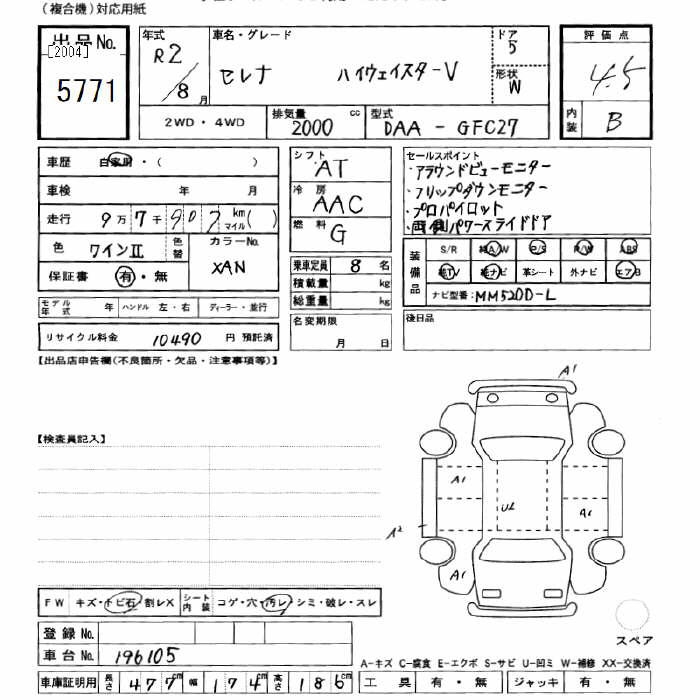 (複合機)対応用紙
出品No.
[2004]
5771
年式
R2/8月
車名・グレード
セレナ ハイウェイスターV
ドア
5
形状
W
評価点
4.5
内装
B
2WD・4WD
排気量
2000 cc
型式
DAA - GFC27
車歴 自家用・( )
車検 年 月
走行 9万7千907 km マイル( )
色 ワインII 色替
カラーNo.
XAN
保証書 有・無
モデル年式 年 ハンドル 左・右 ディーラー・並行
リサイクル料金 10490 円 預託済
シフト
AT
冷房
AAC
燃料
G
乗車定員 8 名
積載量 kg
総重量 kg
名変期限
月 日
セールスポイント
・アラウンドビューモニター
・フリップダウンモニター
・プロパイロット
・両側パワースライドドア
装備品
S/R 純A/W P/S P/W ABS
純TV 純ナビ 革シート 外ナビ エアB
ナビ型番:MM520D-L
後日品
【出品店申告欄(不良箇所・欠品・注意事項等)】
【検査員記入】
A1
A1
U2
A1
A2
A1
スペア
FW キズ・トビ石・割レX シート内装 コゲ・穴・汚レ・シミ・破レ・スレ
登録No.
車台No. 196105
車庫証明用 長さ 477cm 幅 174cm 高さ 186cm
A-キズ C-腐食 E-エクボ S-サビ U-凹ミ W-補修 XX-交換済
工具 有・無 ジャッキ 有・無